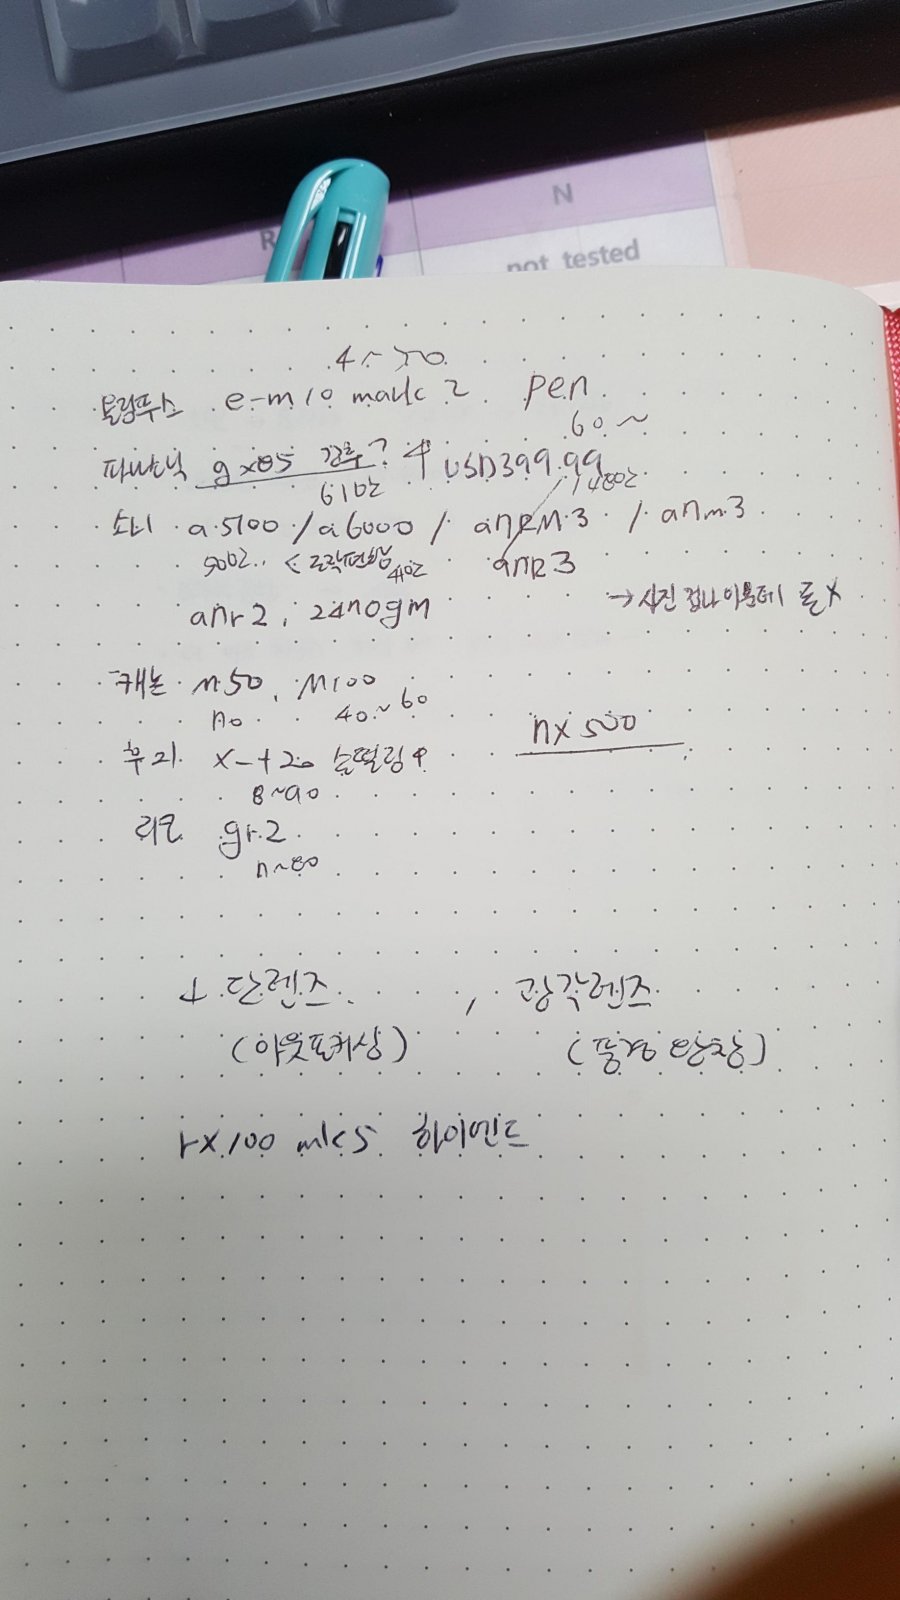 R N
not tested
4~70
올림푸스 e-m10 mark 2 pen
60~
파나소닉 gx85 검추? ↑ USD399.99
61인 148만
소니 a5100 / a6000 / a7RM3 / a7m3
500그.. < 조작편함 a7R3
a7r2, 2470gm
→사진 겁나 이쁜데 돈X
캐논 M50, M100
70 40~60
nx500
후지 x-t20 손떨림↑
8~90
리코 gr2
7~80
↓ 단렌즈 , 광각렌즈
(아웃포커싱) (풍경 왕창)
rx100 mk5 하이엔드